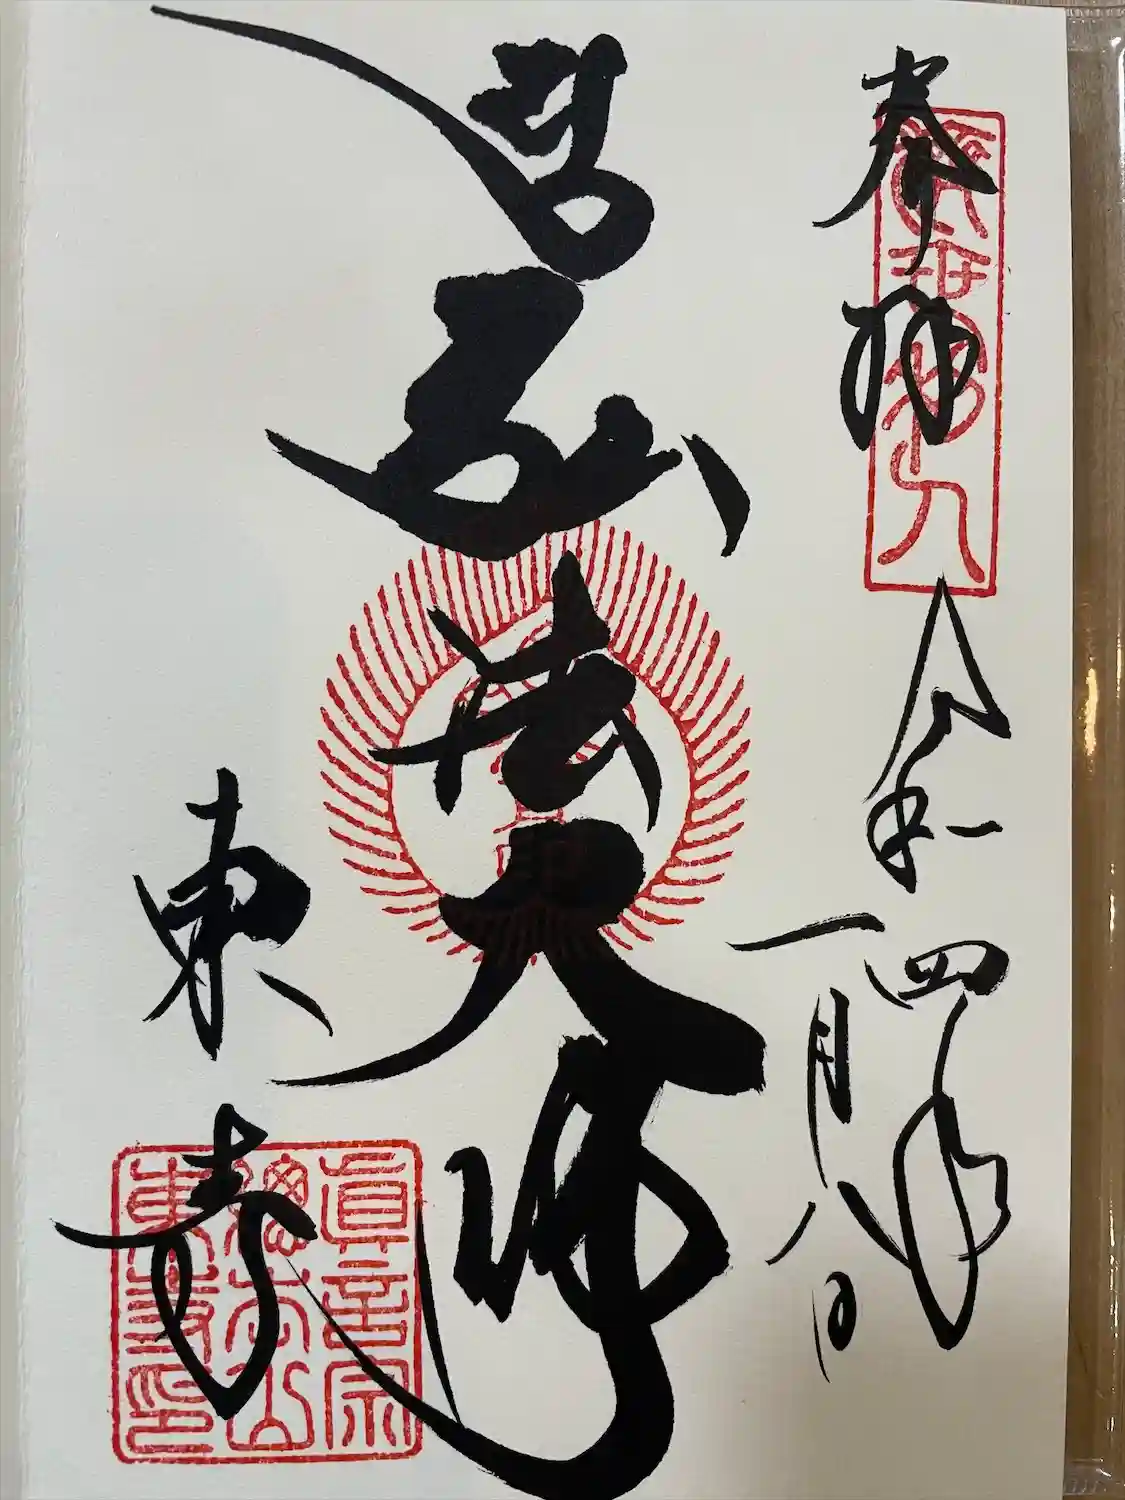 奉拝
令和四年
一月八日
弘法大師
東寺
眞言宗
總本山
東寺印